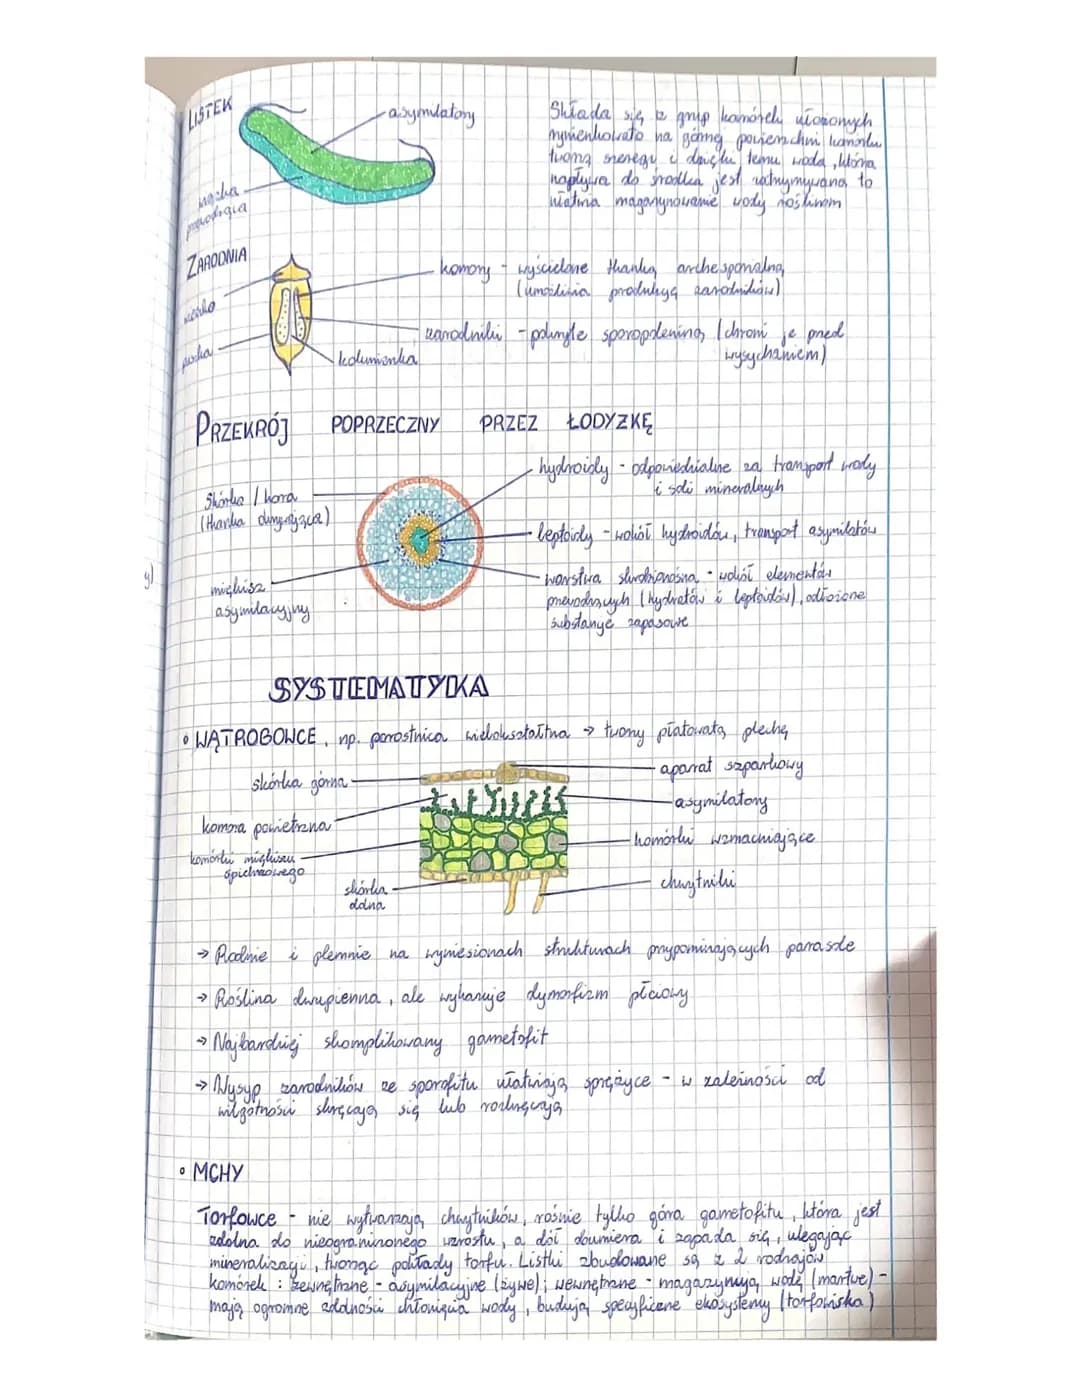 LISTEK
asymilatory
Składa się z grup komórek ułożonych
na górnej powierzchni
tworzą szeregi i dzięki temu woda, która
napływa do środka jest zatrzymywana to
ułatwia magazynowanie wody roślinom
ZARODNIA
wieczko
puszka
komory - wyścielone tkanką archesporialną
(umożliwia produkcję zarodników)
zarodniki - pokryte sporopoleniną (chroni je przed
wysychaniem)
kolumienka
PRZEKRÓJ POPRZECZNY PRZEZ ŁODYŻKĘ
Skórka / kora
(tkanka okrywająca)
miękisz
asymilacyjny
hydroidy - odpowiedzialne za transport wody
i soli mineralnych
leptoidy - wokół hydroidów, transport asymilatów
warstwa skrobionośna - wokół elementów
przewodzących (hydroidów i leptoidów), odłożone
substancje zapasowe
SYSTEMATYKA
• WĄTROBOWCE, np. porostnica wielokształtna → tworzy płatowatą plechę
skórka górna
komora powietrzna
komórki miękiszu
spichrzowego
skórka
dolna
aparat szparkowy
asymilatory
komórki wzmacniające
chwytniki
→ Rodnie i plemnie na wyniesionach strukturach przypominających parasole
→ Roślina dwupienna, ale wykazuje dymorfizm płciowy
→ Najbardziej skomplikowany gametofit
→ Wysyp zarodników ze sporofitu ułatwiają sprężyce - w zależności od
wilgotności skręcają się lub rozkręcają
• MCHY
Torfowce - nie wytwarzają chwytników, rośnie tylko góra gametofitu, która jest
zdolna do nieograniczonego wzrostu, a dół obumiera i zapada się, ulegając
mineralizacji, tworząc pokłady torfu. Listki zbudowane są z 2 rodzajów
komórek: zewnętrzne - asymilacyjne (żywe); wewnętrzne - magazynują wodę (martwe) -
mają ogromne zdolności chłonięcia wody, budują specyficzne ekosystemy (torfowiska)